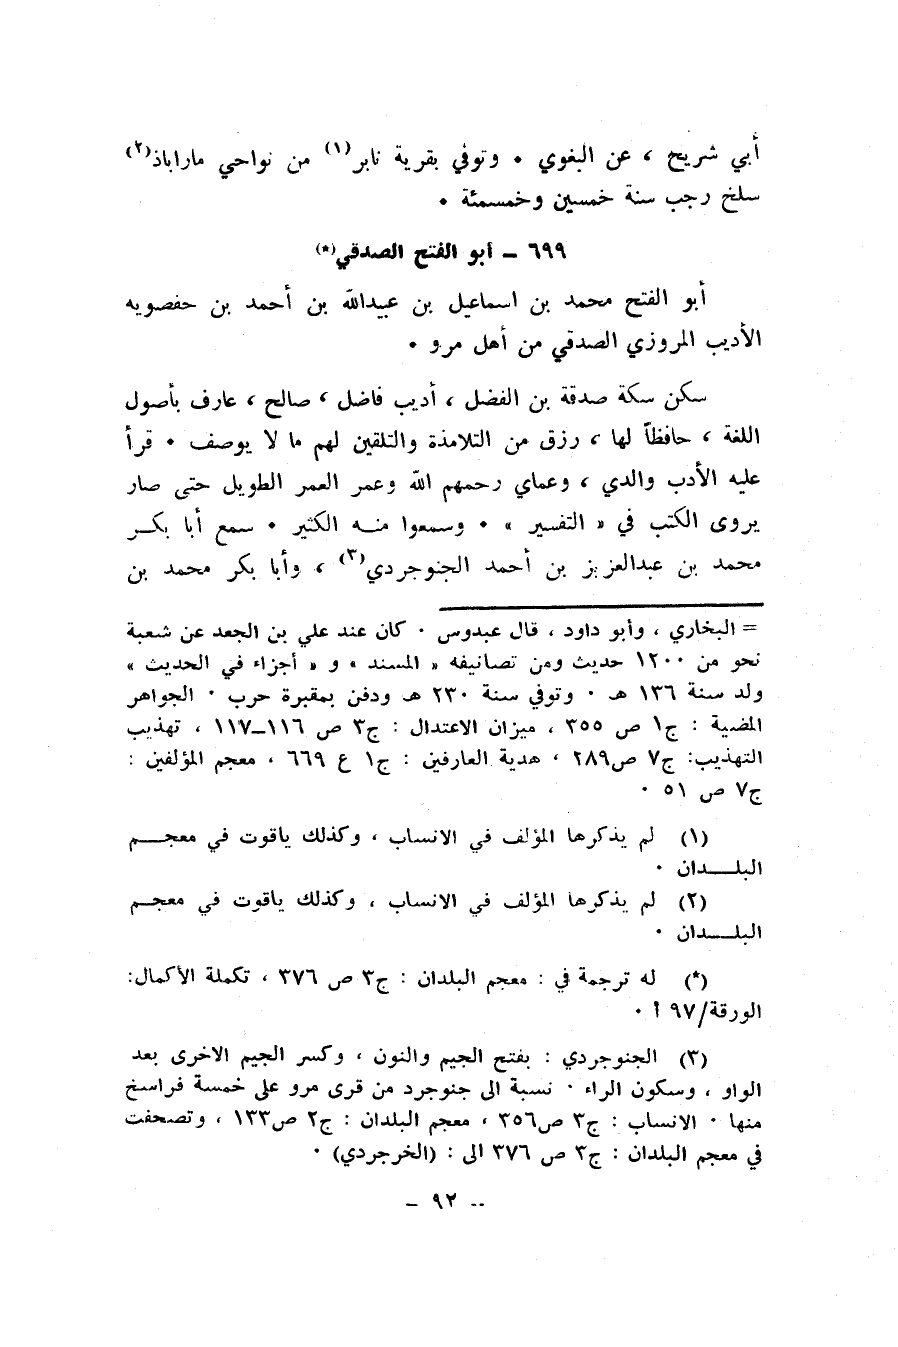 أبي شريح ، عن البغوي . وتوفي بقرية نابر(١) من نواحي ماراباذ(٢)
سلخ رجب سنة خمسين وخمسمئة .
٦٩٩ – أبو الفتح الصدقي(*)
أبو الفتح محمد بن اسماعيل بن عبيدالله بن أحمد بن حفصويه
الأديب المروزي الصدقي من أهل مرو .
سكن سكة صدقة بن الفضل ، أديب فاضل ، صالح ، عارف بأصول
اللغة ، حافظاً لها ، رزق من التلامذة والتلقين لهم ما لا يوصف . قرأ
عليه الأدب والدي ، وعماي رحمهم الله وعمر العمر الطويل حتى صار
يروى الكتب في « التفسير » . وسمعوا منه الكثير . سمع أبا بكر
محمد بن عبدالعزيز بن أحمد الجنوجردي(٣) ، وأبا بكر محمد بن
= البخاري ، وأبو داود ، قال عبدوس . كان عند علي بن الجعد عن شعبة
نحو من ١٢٠٠ حديث ومن تصانيفه « المسند » و « أجزاء في الحديث »
ولد سنة ١٣٦ هـ . وتوفي سنة ٢٣٠ هـ ودفن بمقبرة حرب . الجواهر
المضية : ج١ ص ٣٥٥ ، ميزان الاعتدال : ج٣ ص ١١٦–١١٧ ، تهذيب
التهذيب: ج٧ ص٢٨٩ ، هدية العارفين : ج١ ع ٦٦٩ ، معجم المؤلفين :
ج٧ ص ٥١ .
(١) لم يذكرها المؤلف في الانساب ، وكذلك ياقوت في معجم
البلدان .
(٢) لم يذكرها المؤلف في الانساب ، وكذلك ياقوت في معجم
البلدان .
(*) له ترجمة في : معجم البلدان : ج٣ ص ٣٧٦ ، تكملة الأكمال:
الورقة/٩٧ أ .
(٣) الجنوجردي : بفتح الجيم والنون ، وكسر الجيم الاخرى بعد
الواو ، وسكون الراء . نسبة الى جنوجرد من قرى مرو على خمسة فراسخ
منها . الانساب : ج٣ ص٣٥٦ ، معجم البلدان : ج٢ ص١٣٣ ، وتصحفت
في معجم البلدان : ج٣ ص ٣٧٦ الى : (الخرجردي) .
– ٩٢ –